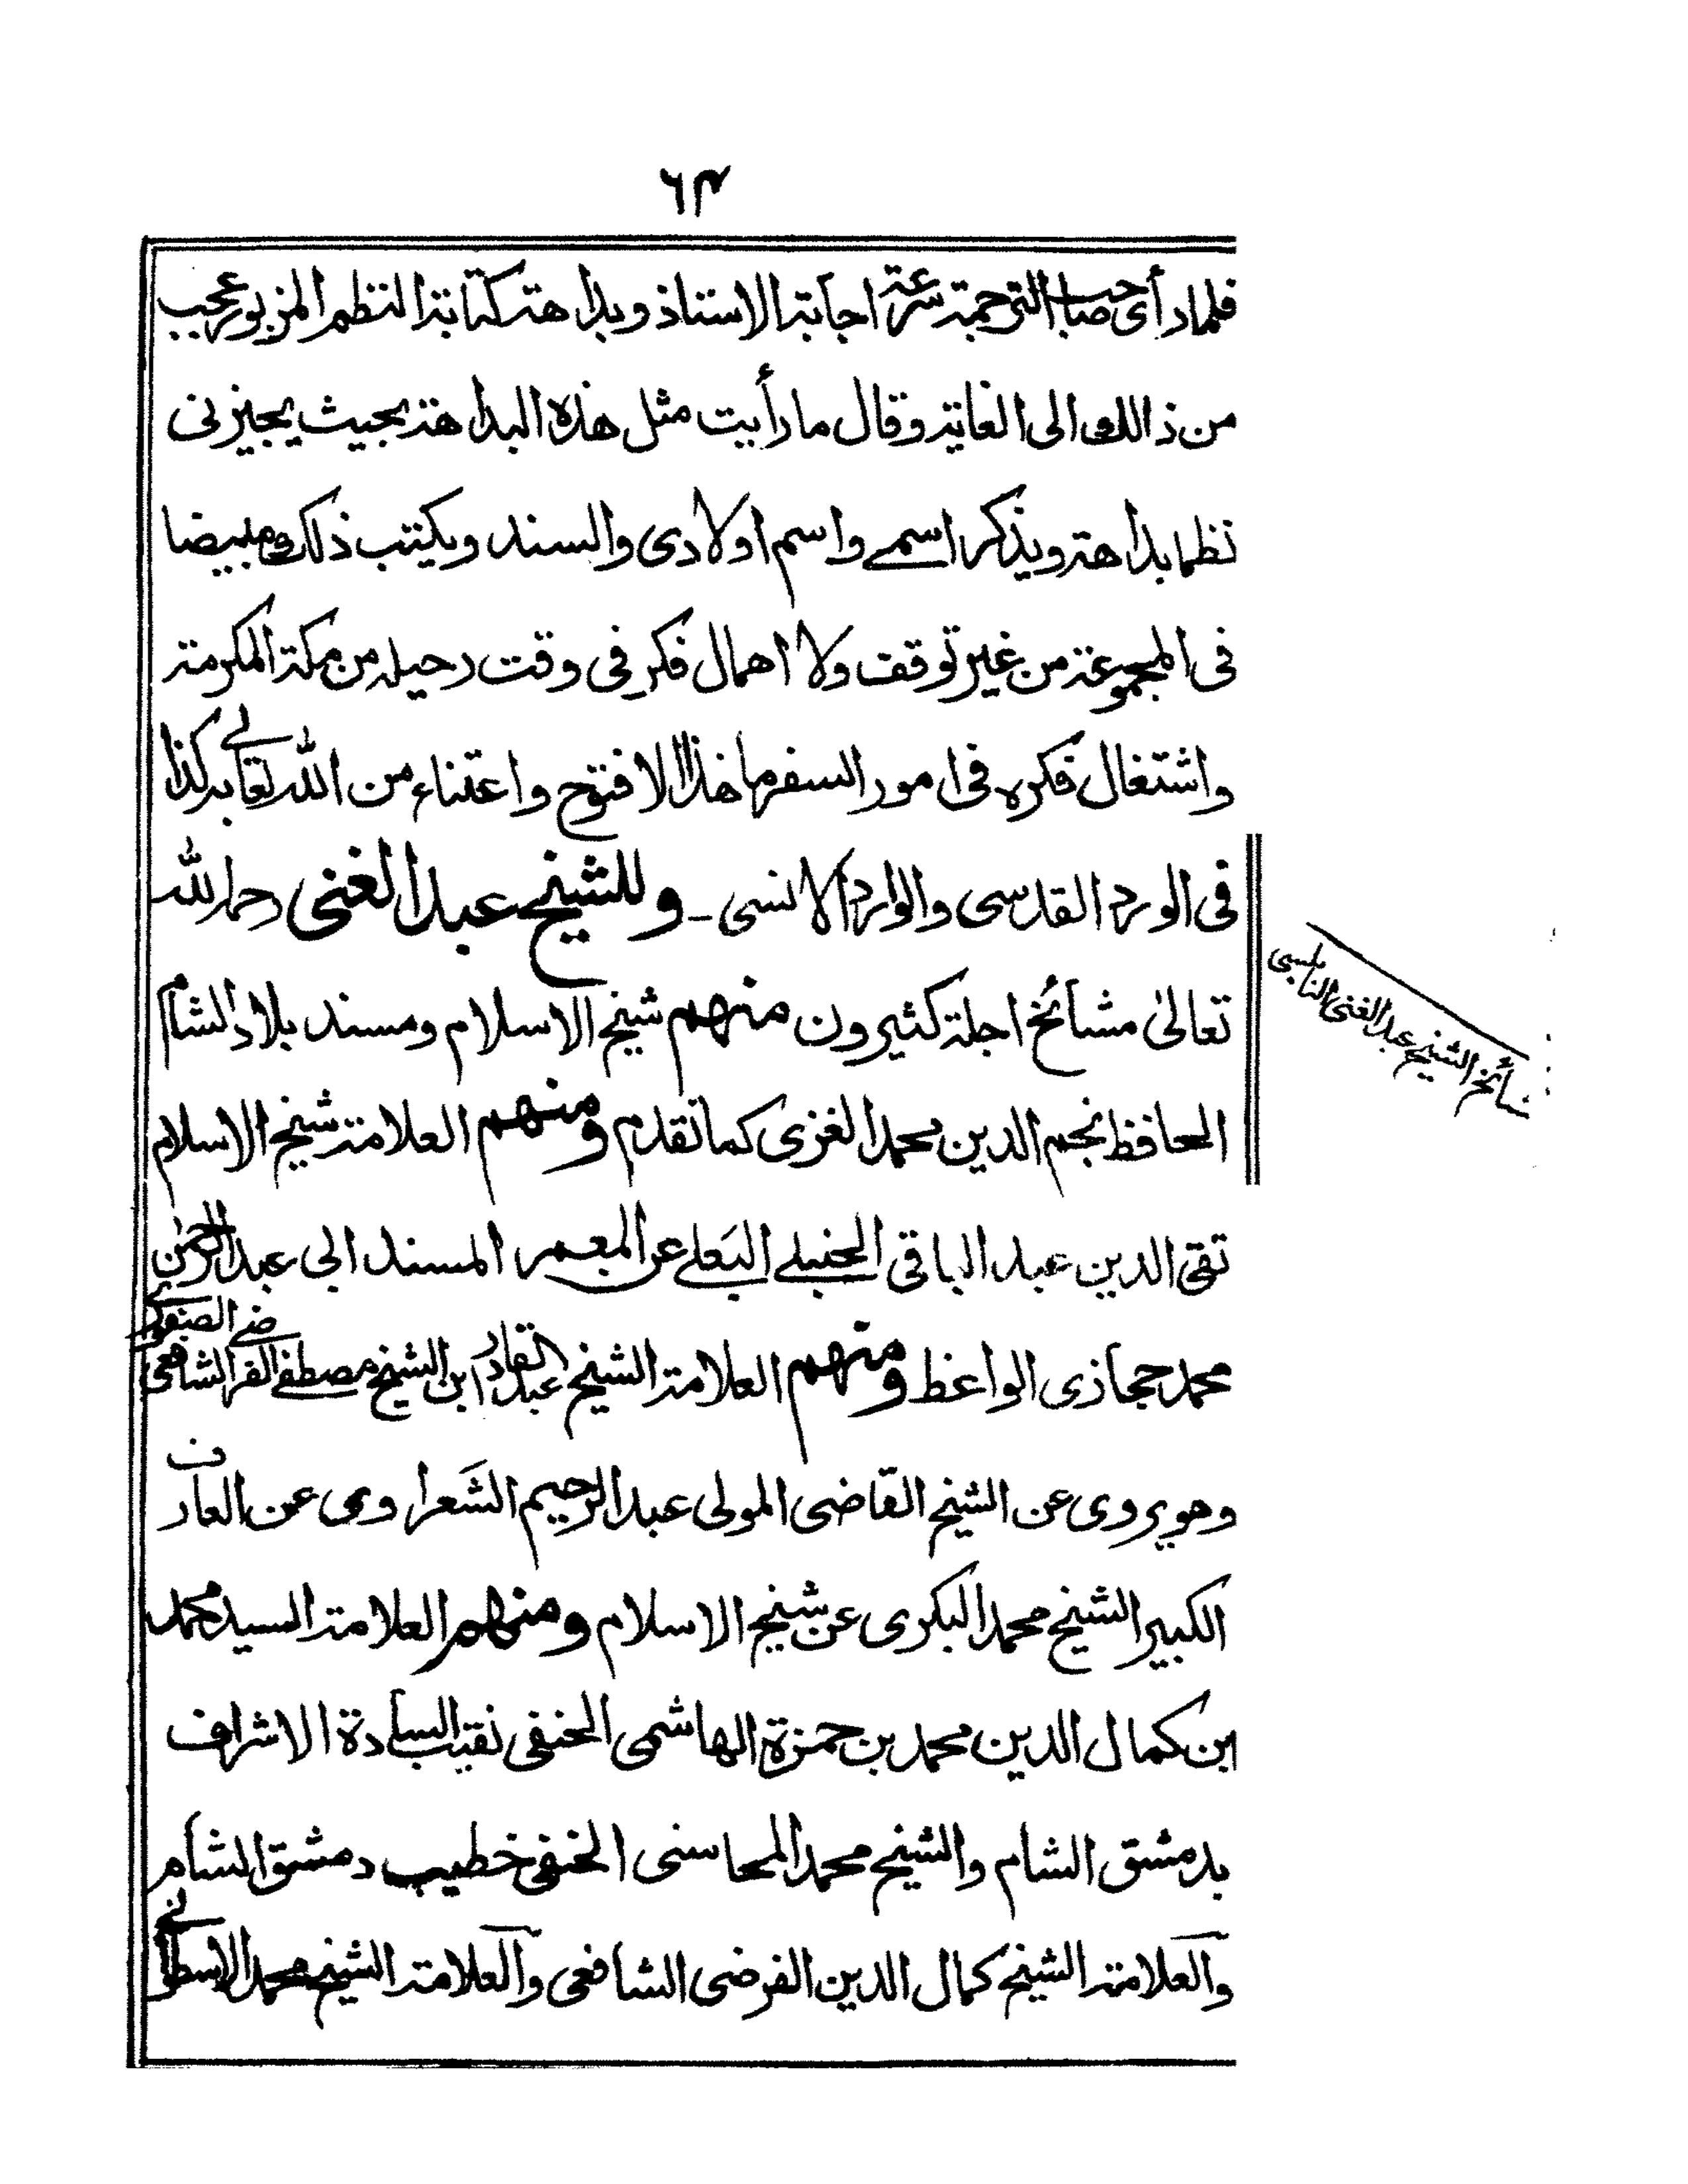 ٦٣
فلما رأى صاحب الترجمة سرعة اجابة الاستاذ وبداهته كتابة النظم المزبور عجب
من ذالك الى الغاية وقال ما رأيت مثل هذه البداهة بحيث يجيزنى
نظما بداهة ويذكر اسمى واسم اولادى والسند ويكتب ذلك مبيضا
فى المجموعة من غير توقف ولا اهمال فكر فى وقت رحيله من مكة المكرمة
واشتغال فكره فى امور السفر ما هذا الا فتوح واعتناء من الله تعالى به كذا
فى الورد القدسى والوارد الانسى - وللشيخ عبد الغنى رحمه الله
تعالىٰ مشائخ اجلة كثيرون منهم شيخ الاسلام ومسند بلاد الشام
الحافظ نجم الدين محمد الغزى كما تقدم ومنهم العلامة شيخ الاسلام
تقى الدين عبد الباقى الحنبلى البعلى عن المعمر المسند الى عبد الرحمٰن
محمد حجازى الواعظ ومنهم العلامة الشيخ عبد القادر ابن الشيخ مصطفى الفرضى الصفورى الشافعى
وهو يروى عن الشيخ القاضى المولى عبد الرحيم الشَعراوى عن العارف
الكبير الشيخ محمد البكرى عن شيخ الاسلام ومنهم العلامة السيد محمد
ابن كمال الدين محمد بن حمزة الهاشمى الحنفى نقيب السادة الاشراف
بدمشق الشام والشيخ محمد المحاسنى الحنفى خطيب دمشق الشام
والعلامة الشيخ كمال الدين الفرضى الشافعى والعلامة الشيخ محمد الاسطوانى
الشيخ عبد الغنى النابلسى